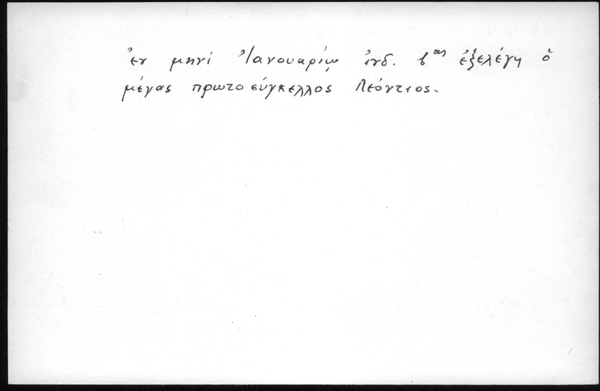 ἐν μηνὶ Ἰανουαρίῳ ἰνδ. β^ας ἐξελέγη ὁ
μέγας πρωτοσύγκελλος Λεόντιος.